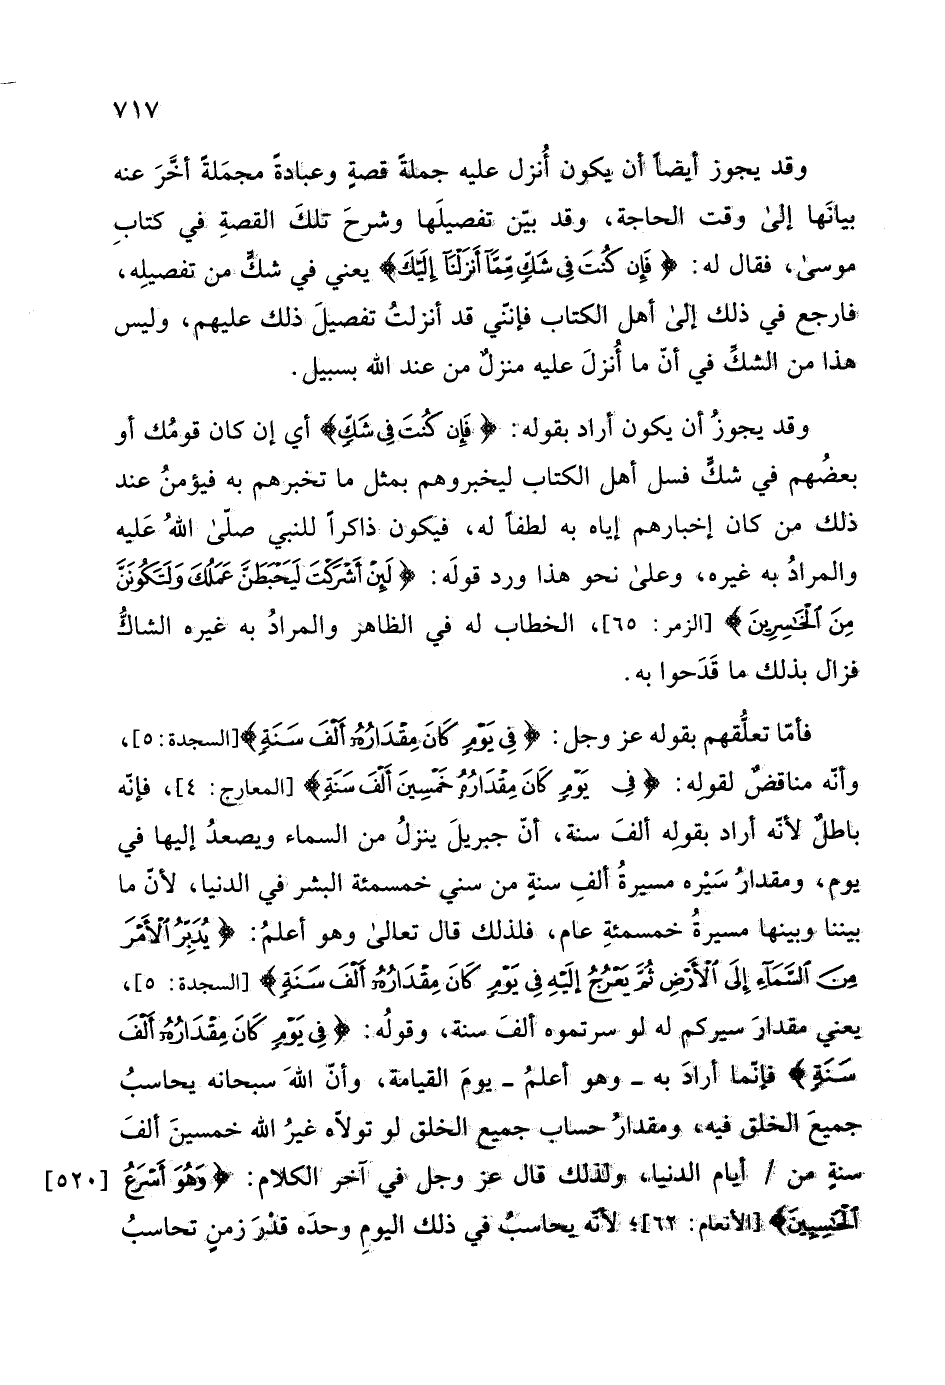 ٧١٧
وقد يجوز أيضاً أن يكون أُنزل عليه جملةً قصةٍ وعبادةً مجمَلةً أخَّرَ عنه
بيانَها إلىٰ وقت الحاجة، وقد بيّن تفصيلَها وشرحَ تلكَ القصةِ في كتابِ
موسىٰ، فقال له: ﴿فَإِن كُنتَ فِي شَكٍّ مِّمَّآ أَنزَلْنَآ إِلَيْكَ﴾ يعني في شكٍّ من تفصيلِه،
فارجع في ذلك إلىٰ أهل الكتاب فإنّني قد أنزلتُ تفصيلَ ذلك عليهم، وليس
هذا من الشكِّ في أنّ ما أُنزلَ عليه منزلٌ من عند الله بسبيل.
وقد يجوزُ أن يكون أراد بقوله: ﴿فَإِن كُنتَ فِي شَكٍّ﴾ أي إن كان قومُك أو
بعضُهم في شكٍّ فسل أهل الكتاب ليخبروهم بمثل ما تخبرهم به فيؤمنُ عند
ذلك من كان إخبارهم إياه به لطفاً له، فيكون ذاكراً للنبي صلّىٰ اللهُ عَليه
والمرادُ به غيره، وعلىٰ نحو هذا ورد قولَه: ﴿لَئِنْ أَشْرَكْتَ لَيَحْبَطَنَّ عَمَلُكَ وَلَتَكُونَنَّ
مِنَ ٱلْخَٰسِرِينَ﴾ [الزمر: ٦٥]، الخطاب له في الظاهر والمرادُ به غيره الشاكُّ
فزال بذلك ما قَدَحوا به.
فأمّا تعلُّقهم بقوله عز وجل: ﴿فِي يَوْمٍ كَانَ مِقْدَارُهُۥٓ أَلْفَ سَنَةٍ﴾ [السجدة: ٥]،
وأنّه مناقضٌ لقولِه: ﴿فِي يَوْمٍ كَانَ مِقْدَارُهُۥ خَمْسِينَ أَلْفَ سَنَةٍ﴾ [المعارج: ٤]، فإنّه
باطلٌ لأنّه أراد بقولِه ألفَ سنة، أنّ جبريلَ ينزلُ من السماء ويصعدُ إليها في
يوم، ومقدارُ سَيْره مسيرةُ ألفِ سنةٍ من سني خمسمئة البشر في الدنيا، لأنّ ما
بيننا وبينها مسيرةُ خمسمئةِ عام، فلذلك قال تعالىٰ وهو أعلمُ: ﴿يُدَبِّرُ ٱلْأَمْرَ
مِنَ ٱلسَّمَآءِ إِلَى ٱلْأَرْضِ ثُمَّ يَعْرُجُ إِلَيْهِ فِي يَوْمٍ كَانَ مِقْدَارُهُۥٓ أَلْفَ سَنَةٍ﴾ [السجدة: ٥]،
يعني مقدارَ سيركم له لو سرتموه ألفَ سنة، وقولُه: ﴿فِي يَوْمٍ كَانَ مِقْدَارُهُۥٓ أَلْفَ
سَنَةٍ﴾ فإنّما أرادَ به ـ وهو أعلمُ ـ يومَ القيامة، وأنّ اللهَ سبحانه يحاسبُ
جميعَ الخلق فيه، ومقدارُ حساب جميع الخلق لو تولاّه غيرُ الله خمسينَ ألفَ
سنةٍ من / أيام الدنيا، ولذلك قال عز وجل في آخر الكلام: ﴿وَهُوَ أَسْرَعُ [٥٢٠]
ٱلْحَٰسِبِينَ﴾ [الأنعام: ٦٢]؛ لأنّه يحاسبُ في ذلك اليومِ وحدَه قدْرَ زمنٍ تحاسبُ